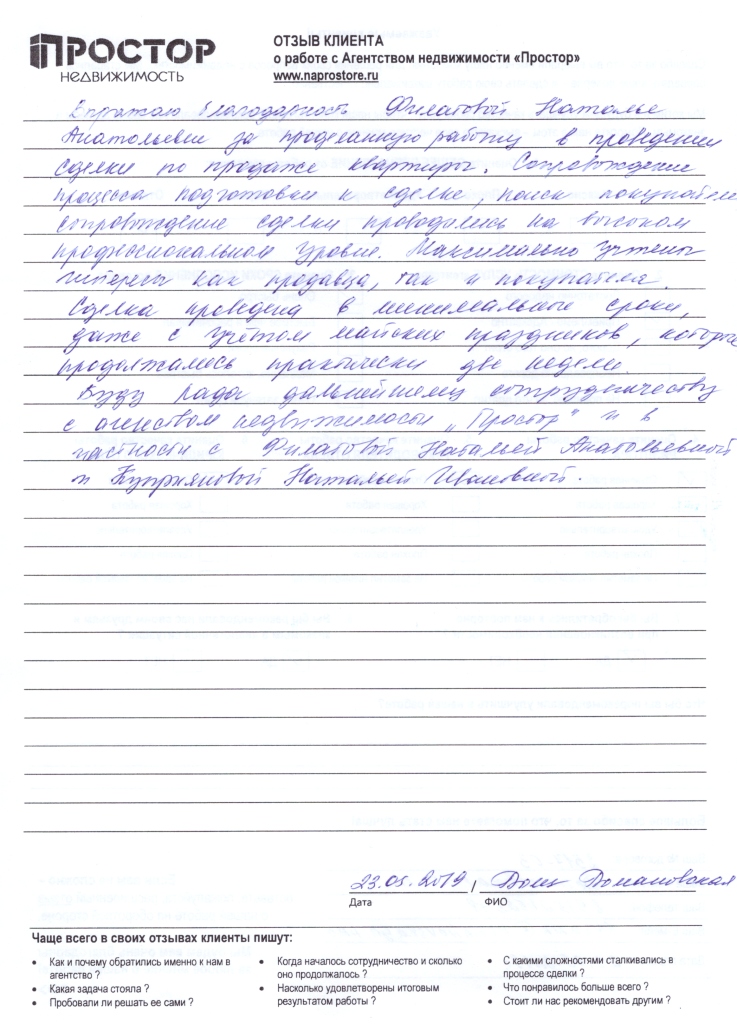 ПРОСТОР
НЕДВИЖИМОСТЬ
ОТЗЫВ КЛИЕНТА
о работе с Агентством недвижимости «Простор»
www.naprostore.ru
Выражаю благодарность Филатовой Наталье
Анатольевне за проделанную работу в проведении
сделки по продаже квартиры. Сопровождение
процесса подготовки к сделке, поиск покупателя
сопровождение сделки проводились на высоком
профессиональном уровне. Максимально учтены
интересы как продавца, так и покупателя.
Сделка проведена в минимальные сроки,
даже с учётом майских праздников, которые
продолжались практически две недели.
Буду рада дальнейшему сотрудничеству
с агенством недвижимости „Простор" и в
частности с Филатовой Натальей Анатольевной
и Куприяновой Натальей Ивановной.
23.05.2019 / Домановская
Дата ФИО
Чаще всего в своих отзывах клиенты пишут:
• Как и почему обратились именно к нам в агентство ?
• Какая задача стояла ?
• Пробовали ли решать ее сами ?
• Когда началось сотрудничество и сколько оно продолжалось ?
• Насколько удовлетворены итоговым результатом работы ?
• С какими сложностями сталкивались в процессе сделки ?
• Что понравилось больше всего ?
• Стоит ли нас рекомендовать другим ?